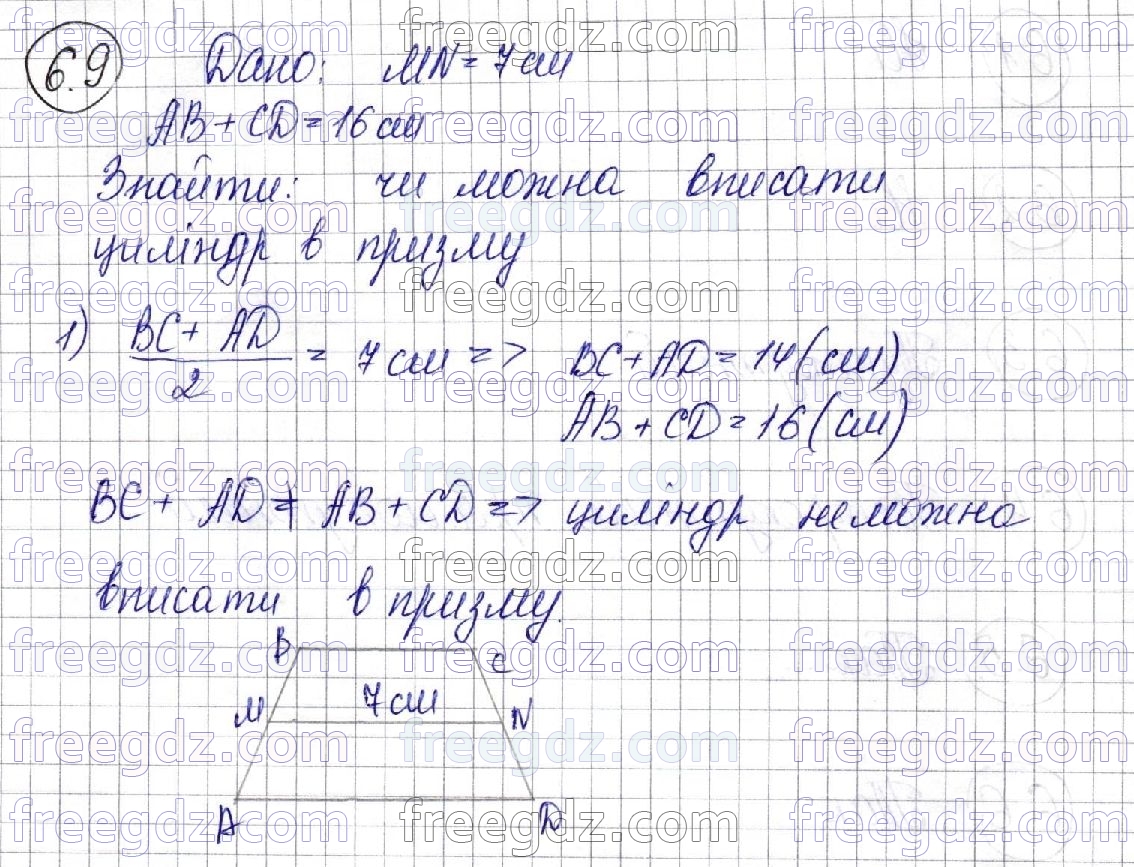 6.9 Дано: MN = 7 см
AB + CD = 16 см
Знайти: чи можна вписати
циліндр в призму
1) (BC + AD)/2 = 7 см => BC + AD = 14 (см)
AB + CD = 16 (см)
BC + AD ≠ AB + CD => циліндр неможна
вписати в призму.
B C
M 7 см N
A D
freegdz.com